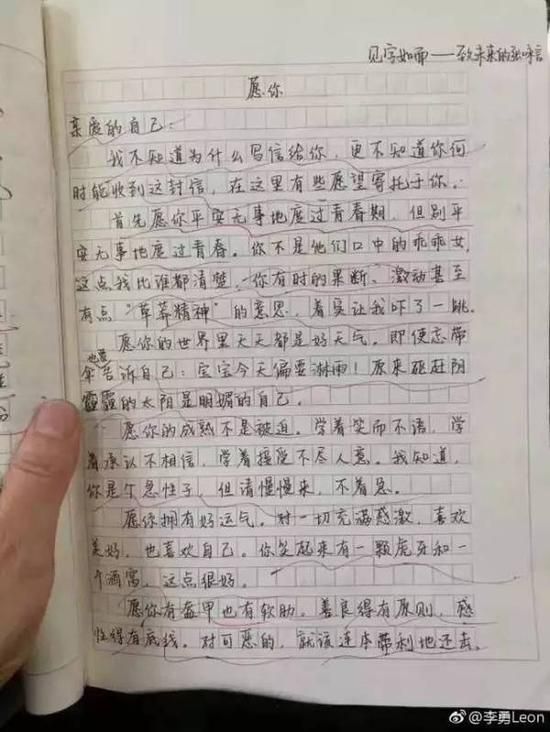 见字如面——致未来的张咏言
愿你
亲爱的自己:
我不知道为什么写信给你,更不知道你何
时能收到这封信,在这里有些愿望寄托于你.
首先愿你平安无事地度过青春期,但别平
安无事地度过青春。你不是他们口中的乖乖女,
这点我比谁都清楚,你有时的果断、激动甚至
有点“草莽精神”的意思,着实让我吓了一跳.
愿你的世界里天天都是好天气。即使忘带
伞也要告诉自己:宝宝今天偏要淋雨!原来驱赶阴
霾的太阳是明媚的自己.
愿你的成熟不是被迫。学着笑而不语,学
着承认不相信,学着接受不尽人意。我知道,
你是个急性子,但请慢慢来,不着急。
愿你拥有好运气。对一切充满感激,喜欢
美好,也喜欢自己。你笑起来有一颗虎牙和一
个酒窝,这点很好。
愿你有盔甲也有软肋。善良得有原则,感
性得有底线。对可恶的,就该连本带利地还击.
@李勇Leon